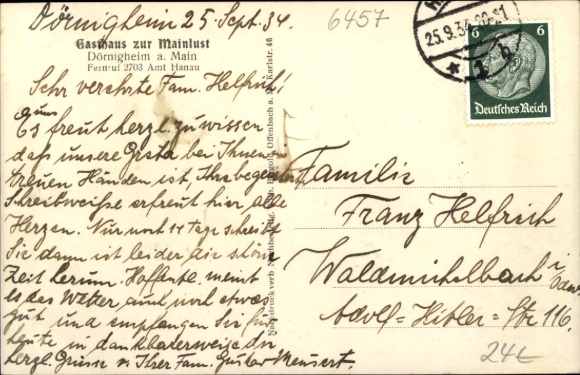 Dörnigheim 25 Sept. 34.
6457
25.9.34
6 6
Deutsches Reich
Gasthaus zur Mainlust
Dörnigheim a. Main
Fernruf 2703 Amt Hanau
Sehr verehrte Fam. Helfrich!
uns
Es freut herzl. zu wissen
daß unsere Greta bei Ihnen in
treuen Händen ist, Ihre
Schreibweiße erfreut hier alle
Herzen. Nur noch 14 Tage schreibt
Sie dann ist leider die schöne
Zeit herum. Hoffentl. meint
es das Wetter auch noch etwas
gut und empfangen Sie für
heute in dankbarerweise die
herzl. Grüsse v. Ihrer Fam. Gustav
Offenbach a. M. Karlstr. 46
Familie
Franz Helfrich
Waldmichelbach i/
Odw.
Adolf=Hitler=Str. 116.
24€